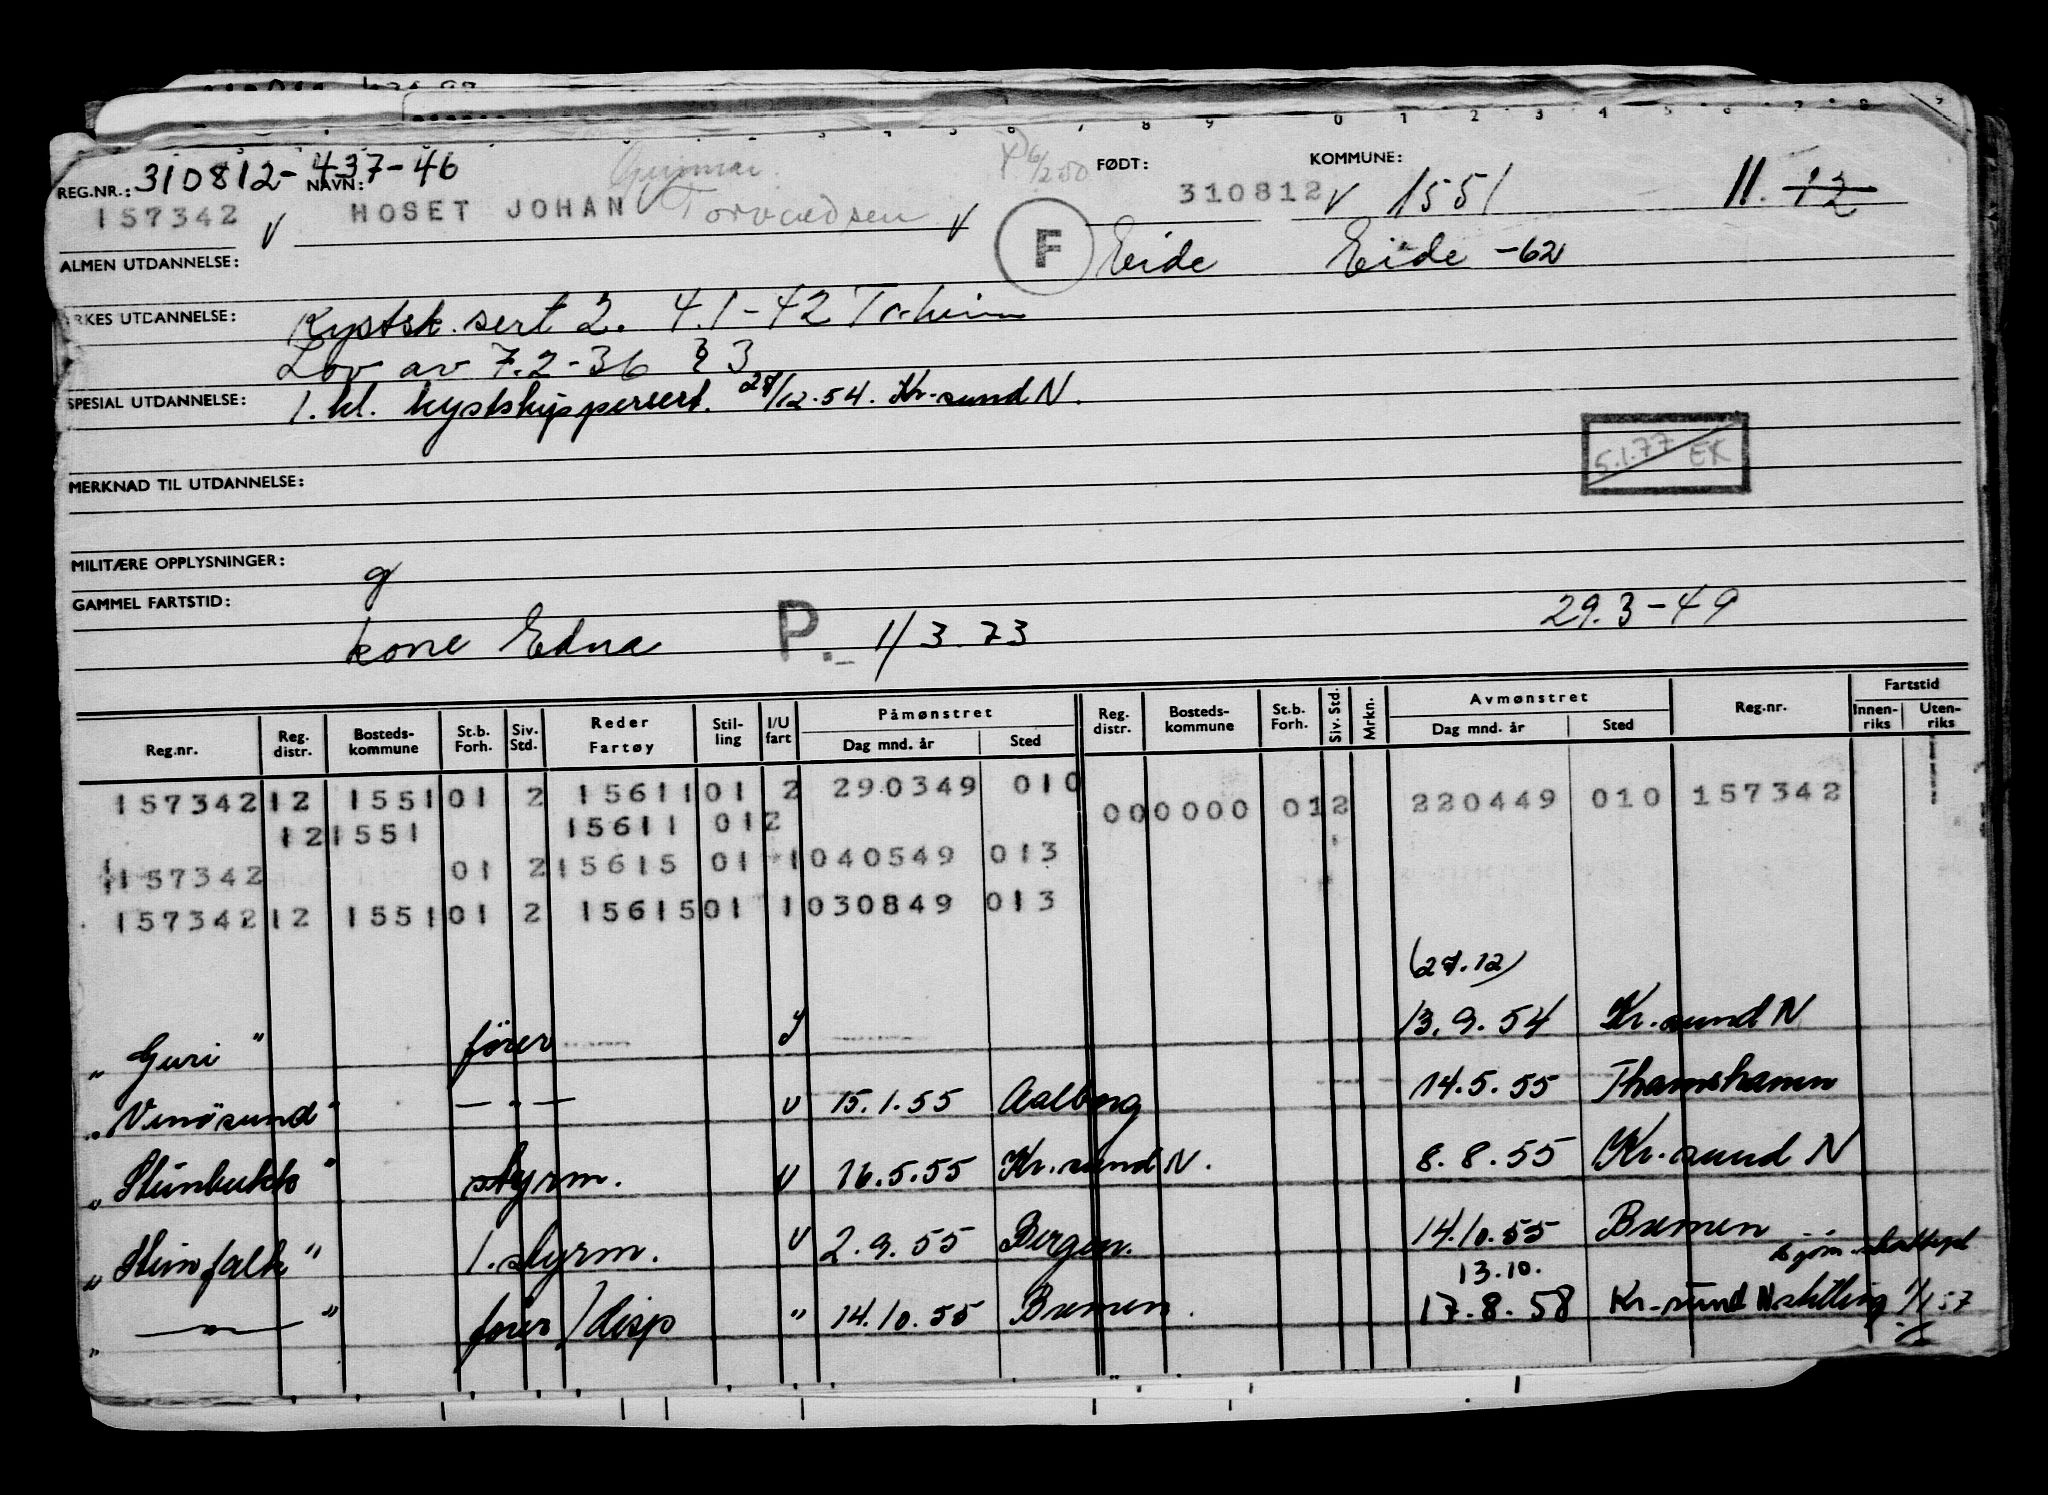 310812-437-46 Gunnar
REG.NR.: NAVN: FØDT: KOMMUNE:
157342 V HOSET JOHAN V 310812 V 1551 11. 12
ALMEN UTDANNELSE: F Eide Eide -62
YRKES UTDANNELSE: Kystsk. sert 2. 4.1-42 Tr.heim
Lov av 7.2-36 § 3
SPESIAL UTDANNELSE: 1. kl. kystskippersert. 27/12.54. Kr.sund N.
5.1.77 EK
MERKNAD TIL UTDANNELSE:
MILITÆRE OPPLYSNINGER:
GAMMEL FARTSTID: 29.3-49
kone Edna P. 1/3.73
Reg.nr. Reg. distr. Bosteds-kommune St.b. Forh. Siv. Std. Reder Fartøy Stil-ling I/U fart Påmønstret Dag mnd. år Sted Reg. distr. Bosteds-kommune St.b. Forh. Siv. Std. Mrkn. Avmønstret Dag mnd. år Sted Reg.nr. Fartstid Innen-riks Uten-riks
157342 12 1551 01 2 15611 01 2 290349 010 000000 01 2 220449 010 157342
12 1551 15611 01 2
157342 01 2 15615 01 1 040549 013
157342 12 1551 01 2 15615 01 1 030849 013
(27.12)
" Guri " fører 13.9.54 Kr.sund N
" Vinösund " — " — U 15.1.55 Aalborg 14.5.55 Thamshamn
" Steinbukk " styrm. U 16.5.55 Kr.sund N. 8.8.55 Kr.sund N
" Steinfalk " 1. styrm. U 2.9.55 Bergen. 14.10.55 Bremen
13.10.
" — " — " fører / disp " 14.10.55 Bremen. 17.8.58 Kr.sund N stilling 1/1 57